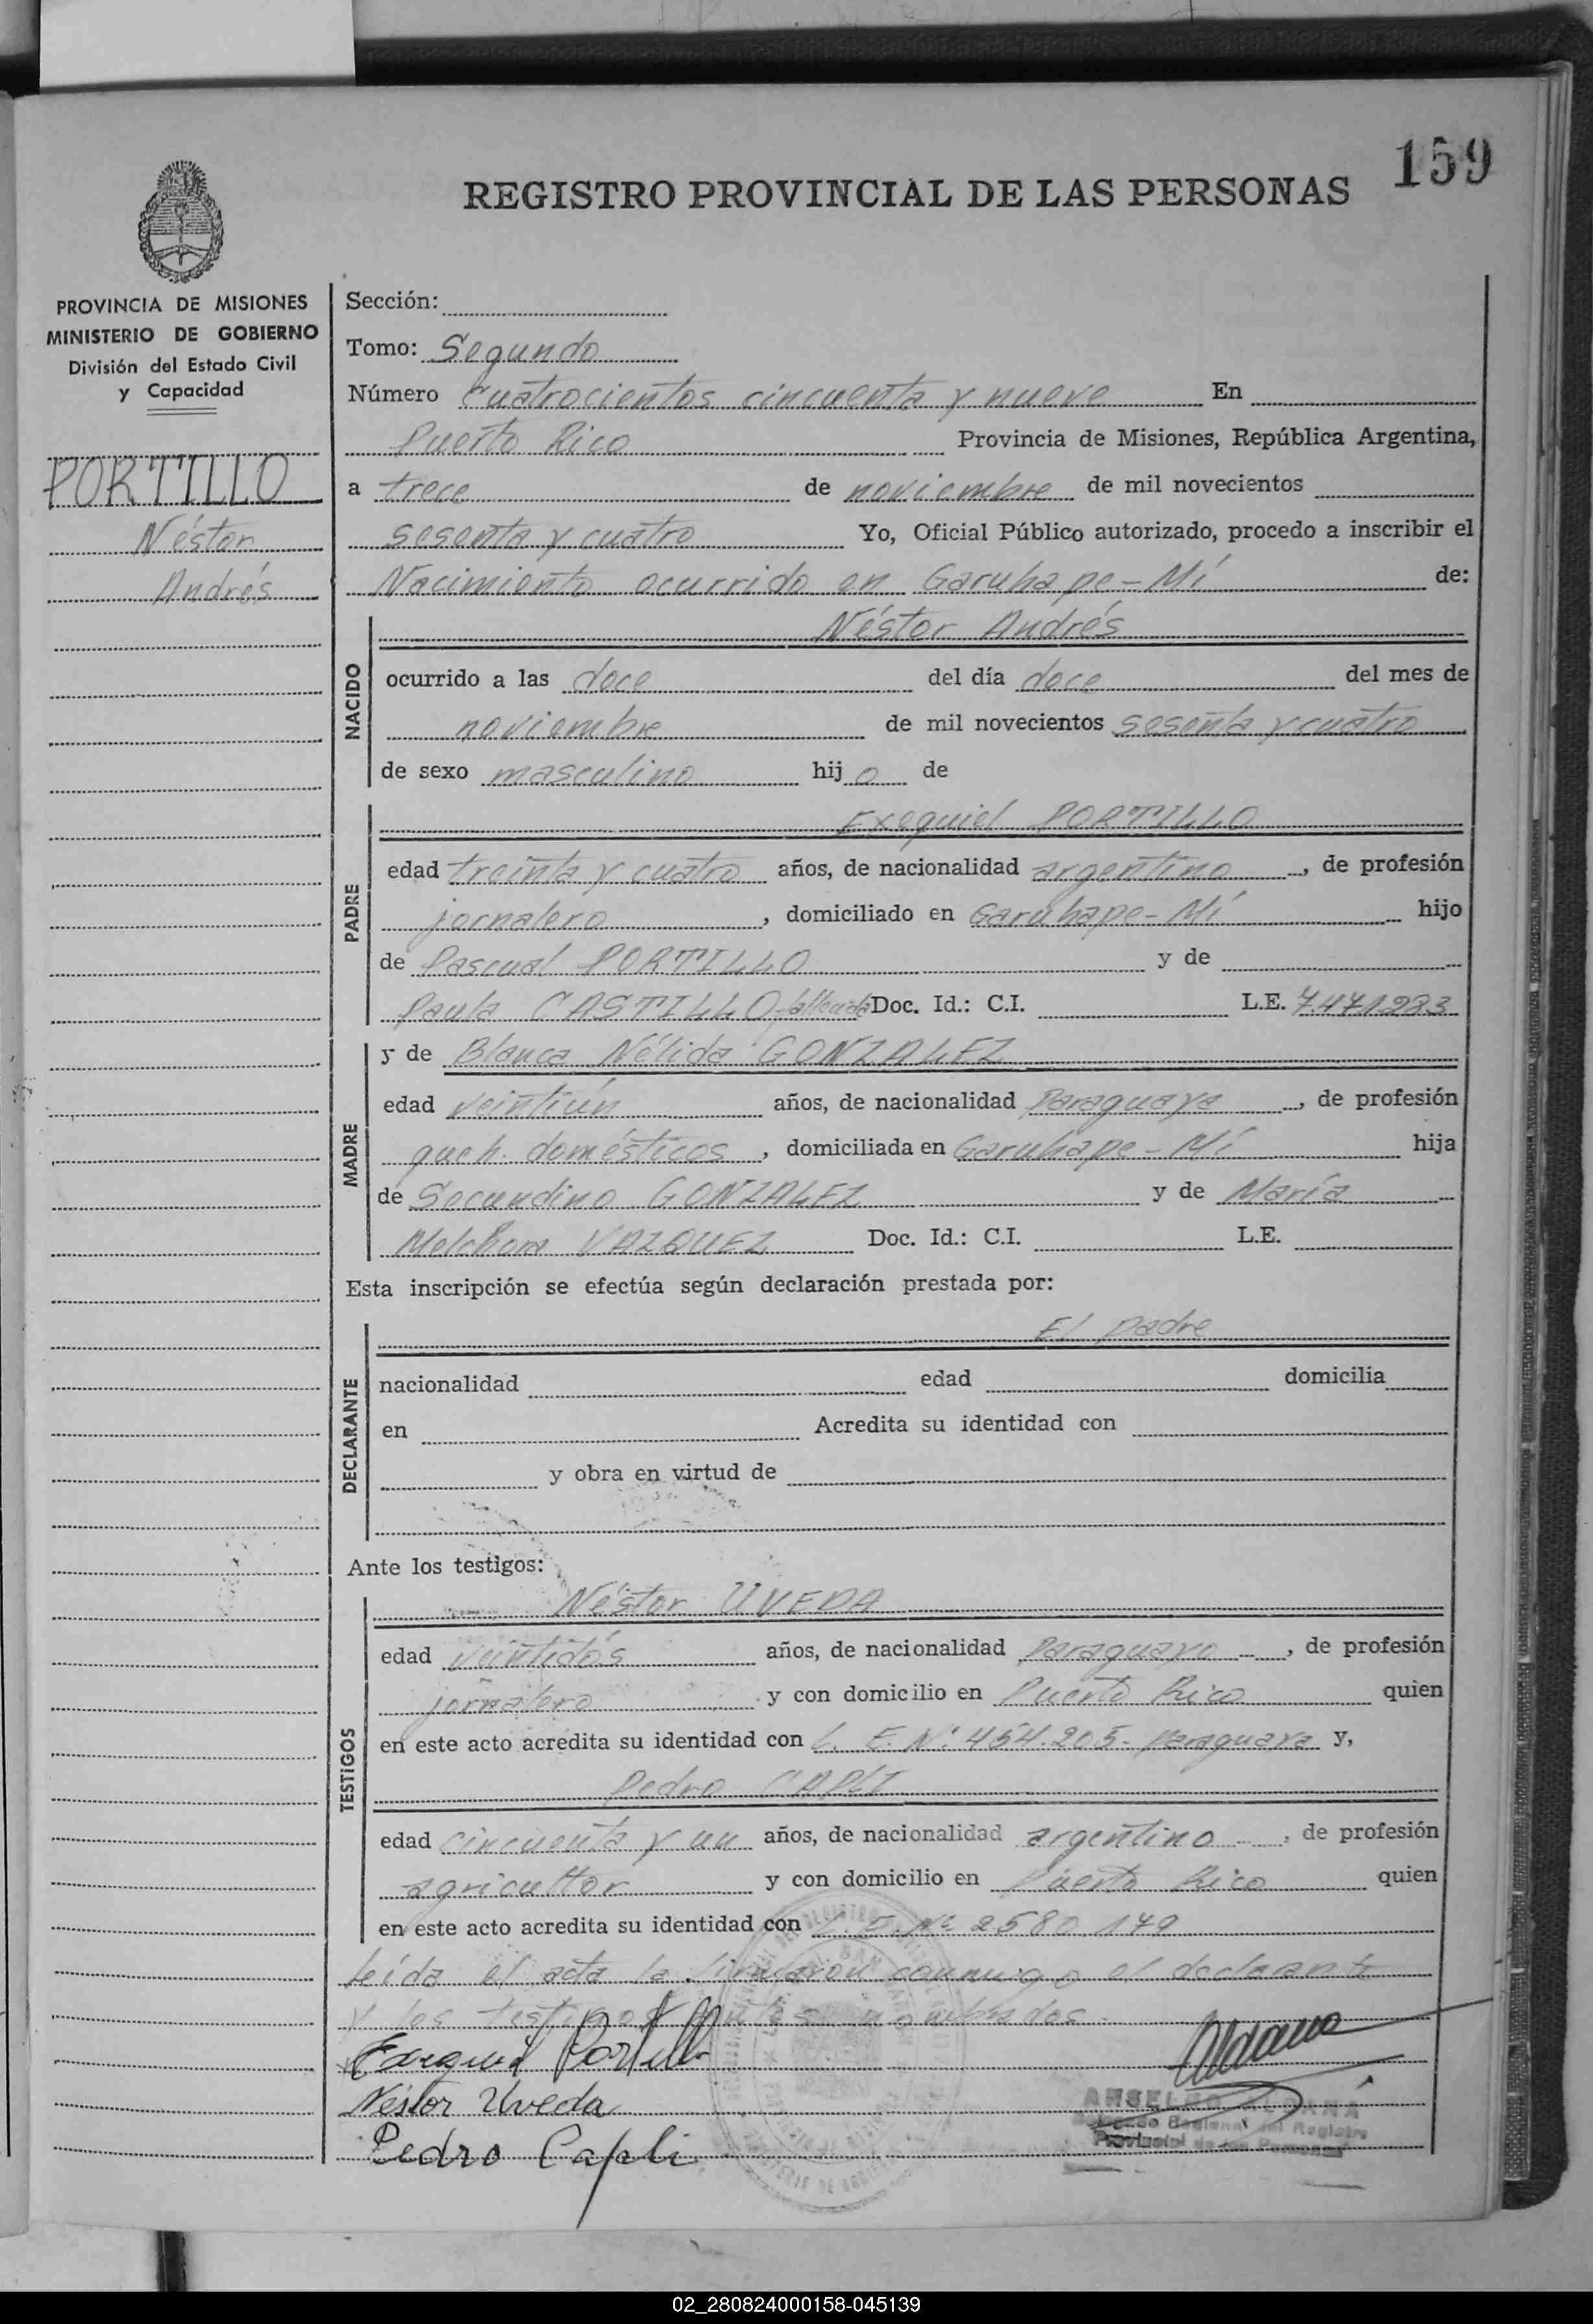 159
REGISTRO PROVINCIAL DE LAS PERSONAS
PROVINCIA DE MISIONES
MINISTERIO DE GOBIERNO
División del Estado Civil
y Capacidad
PORTILLO
Néstor
Andrés
Sección:
Tomo: Segundo
Número Cuatrocientos cincuenta y nueve En
Puerto Rico Provincia de Misiones, República Argentina,
a trece de noviembre de mil novecientos
sesenta y cuatro Yo, Oficial Público autorizado, procedo a inscribir el
Nacimiento ocurrido en Garuhape-Mí de:
NACIDO
Néstor Andrés
ocurrido a las doce del día doce del mes de
noviembre de mil novecientos sesenta y cuatro
de sexo masculino hijo de
PADRE
Exequiel PORTILLO
edad treinta y cuatro años, de nacionalidad argentino, de profesión
jornalero, domiciliado en Garuhape-Mí hijo
de Pascual PORTILLO y de
Paula CASTILLO-fallecida Doc. Id.: C.I. L.E. 7.471.283
MADRE
y de Blanca Nélida GONZALEZ
edad veintiún años, de nacionalidad Paraguaya, de profesión
queh. domésticos, domiciliada en Garuhape-Mí hija
de Secundino GONZALEZ y de María
Melchora VAZQUEZ Doc. Id.: C.I. L.E.
Esta inscripción se efectúa según declaración prestada por:
DECLARANTE
El padre
nacionalidad edad domicilia
en Acredita su identidad con
y obra en virtud de
Ante los testigos:
TESTIGOS
Néstor UVEDA
edad veintidós años, de nacionalidad Paraguayo, de profesión
jornalero y con domicilio en Puerto Rico quien
en este acto acredita su identidad con C. E. Nº 454.205- paraguaya y,
Pedro CAPLI
edad cincuenta y un años, de nacionalidad argentino, de profesión
agricultor y con domicilio en Puerto Rico quien
en este acto acredita su identidad con L.E. Nº 2580.179
Leída el acta la firmaron conmigo el declarante
y los testigos antes nombrados.
Exequiel Portillo
Néstor Uveda
Pedro Capli
Aldana
Regional del Registro
Provincial de las Personas
02_280824000158-045139